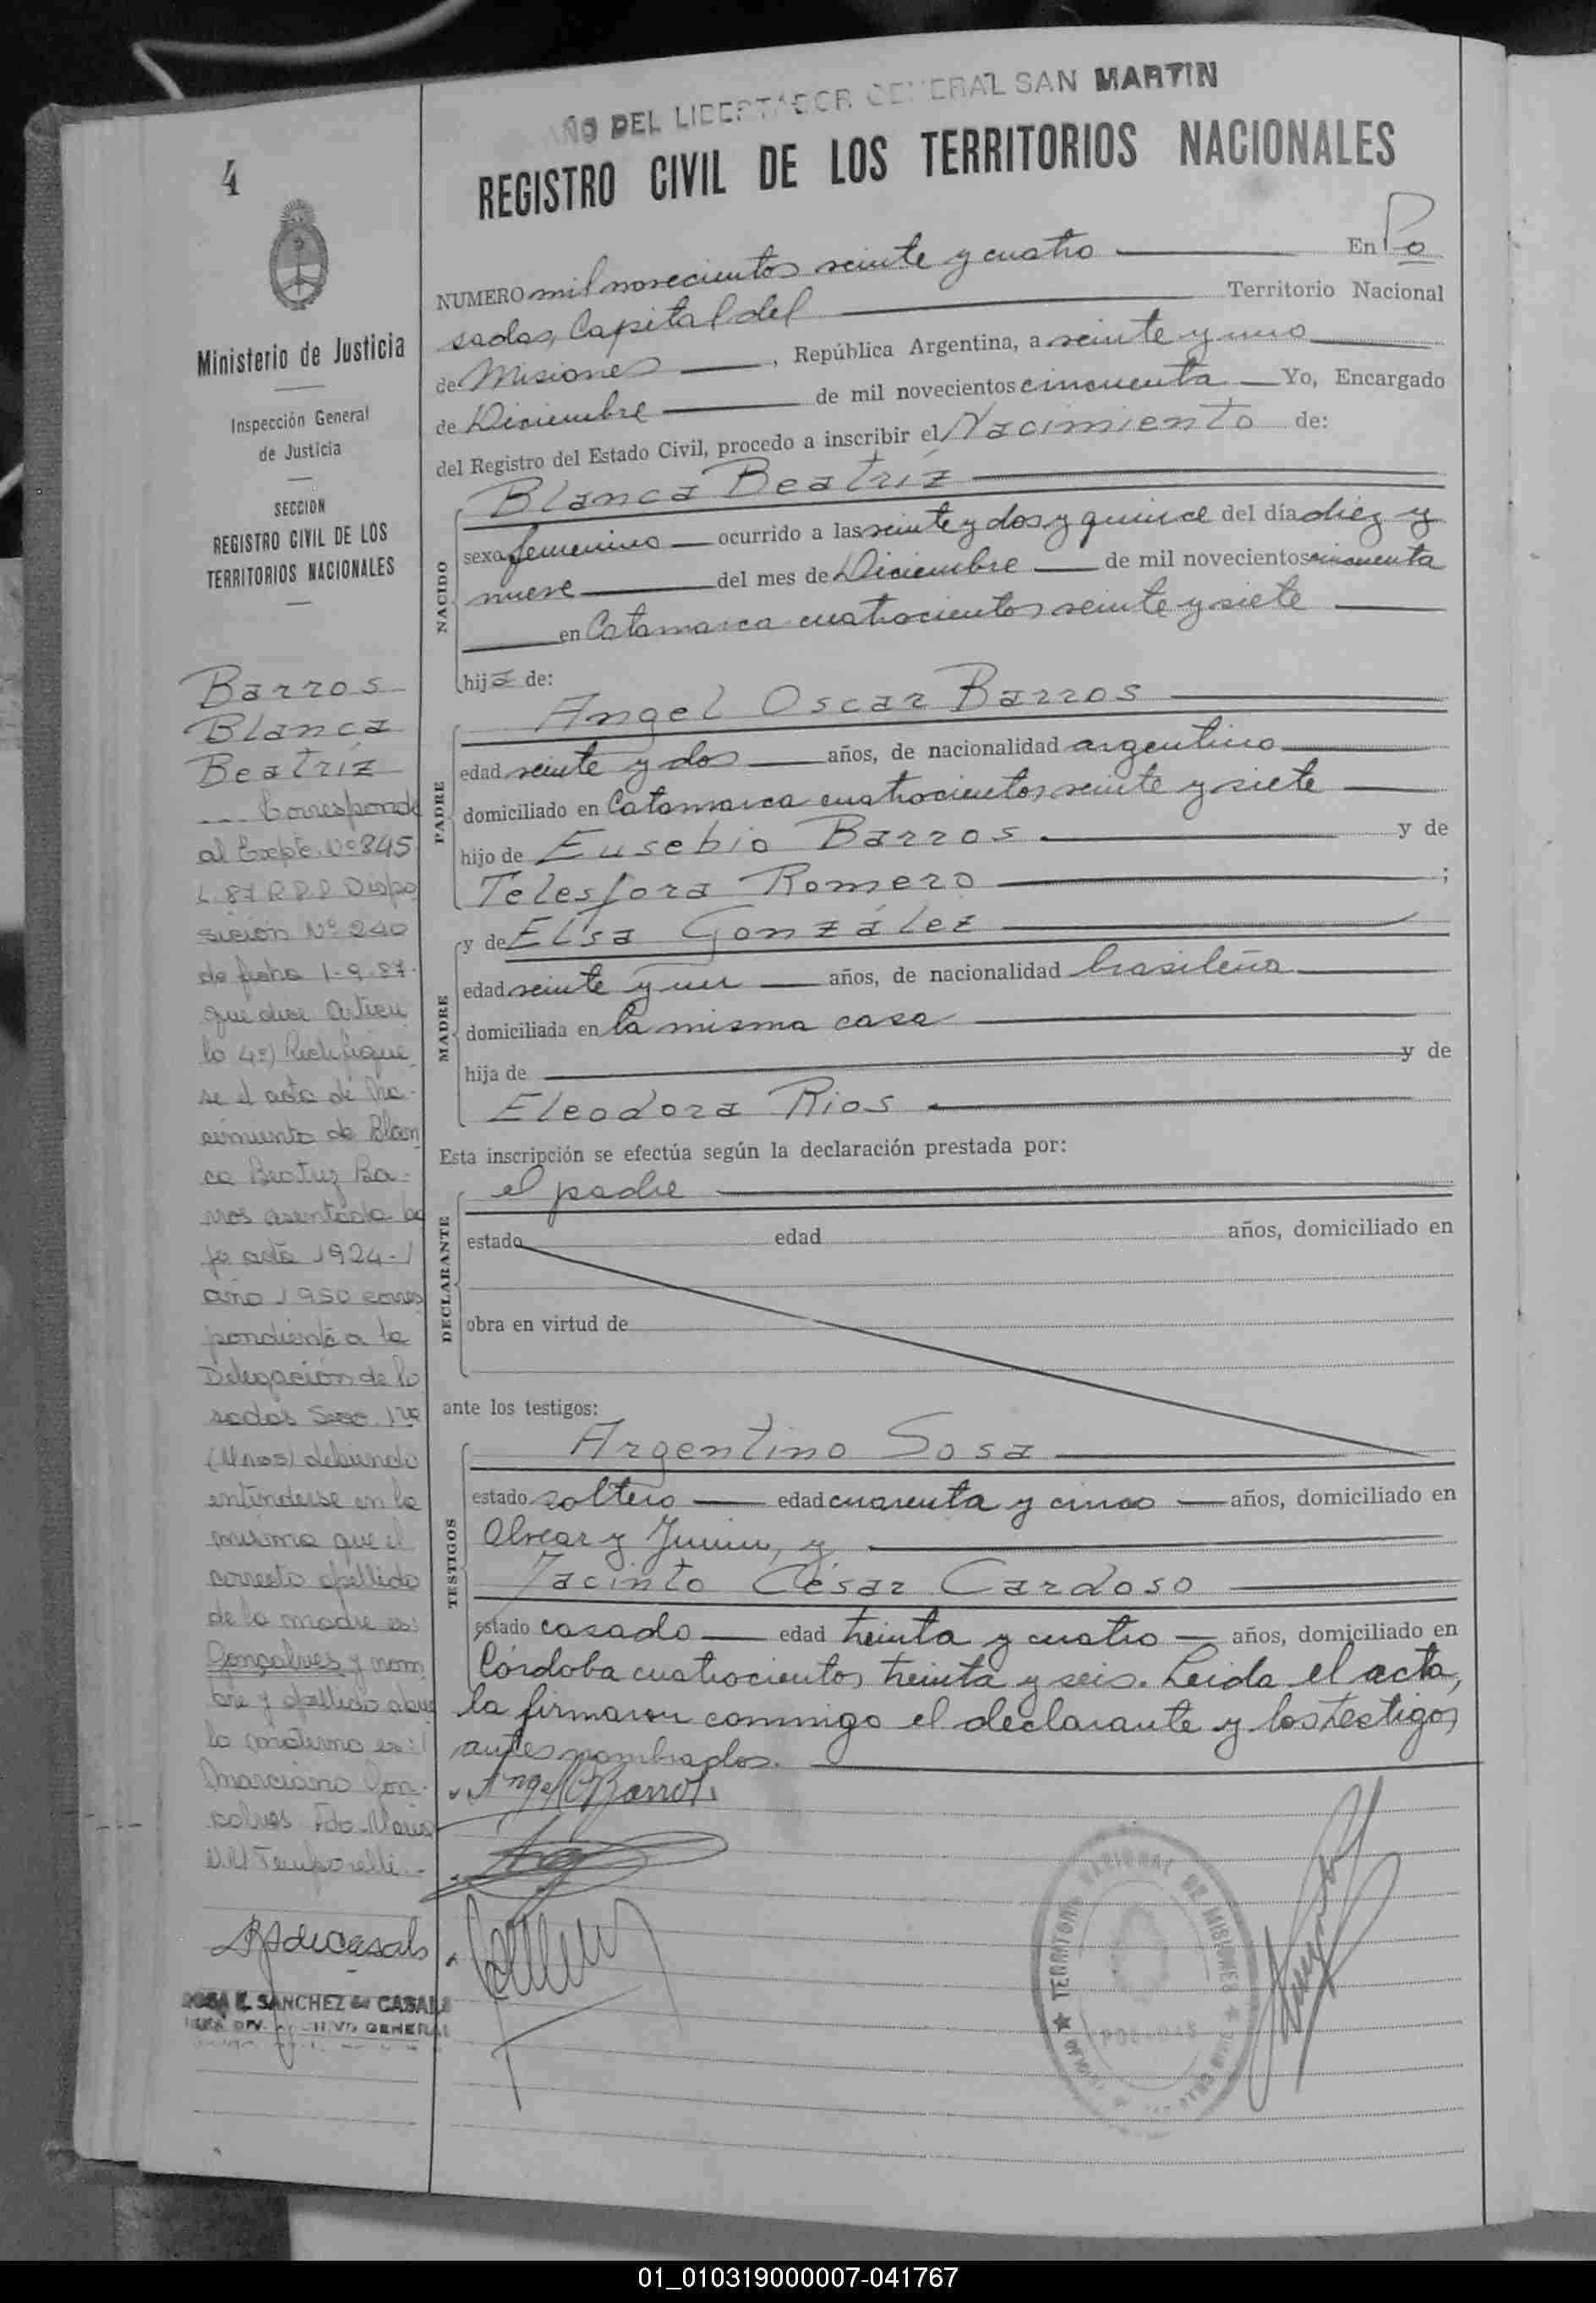 AÑO DEL LIBERTADOR GENERAL SAN MARTIN
REGISTRO CIVIL DE LOS TERRITORIOS NACIONALES
4
Ministerio de Justicia
Inspección General
de Justicia
SECCION
REGISTRO CIVIL DE LOS
TERRITORIOS NACIONALES
Barros
Blanca
Beatríz
Corresponde
al Expte. Nº 845
L. 87 R.P.P. Dispo
sición Nº 240
de fecha 1-9-87-
que dice Artícu
lo 4º) Rectifíque
se el acta de Na-
cimiento de Blan
ca Beatriz Ba-
rros asentada ba
jo acta 1924-1
año 1950 corres
pondiente a la
Delegación de Po
sadas Secc. 1ra
(Mnes) debiendo
entenderse en la
misma que el
correcto apellido
de la madre es:
Gonçalves y nom
bre y apellido abue
lo materno es:
Marciano Gon-
calves Fdo. María
Temporelli.-
ROSA E. SANCHEZ de CASALS
JEFA DIV. ARCHIVO GENERAL
NUMERO mil novecientos veinte y cuatro En Po
sadas, Capital del Territorio Nacional
de Misiones, República Argentina, a veinte y uno
de Diciembre de mil novecientos cincuenta Yo, Encargado
del Registro del Estado Civil, procedo a inscribir el Nacimiento de:
Blanca Beatríz
NACIDO
sexo femenino ocurrido a las veinte y dos y quince del día diez y
nueve del mes de Diciembre de mil novecientos cincuenta
en Catamarca cuatrocientos veinte y siete
hija de:
Angel Oscar Barros
PADRE
edad veinte y dos años, de nacionalidad argentino
domiciliado en Catamarca cuatrocientos veinte y siete
hijo de Eusebio Barros y de
Telesfora Romero ;
y de Elsa González
MADRE
edad veinte y un años, de nacionalidad brasileña
domiciliada en la misma casa
hija de y de
Eleodora Rios
Esta inscripción se efectúa según la declaración prestada por:
el padre
DECLARANTE
estado edad años, domiciliado en
obra en virtud de
ante los testigos:
Argentino Sosa
TESTIGOS
estado soltero edad cuarenta y cinco años, domiciliado en
Alvear y Junin, y
Jacinto César Cardoso
estado casado edad treinta y cuatro años, domiciliado en
Córdoba cuatrocientos treinta y seis. Leida el acta,
la firmaron conmigo el declarante y los testigos
antes nombrados.
Angel O Barros
TERRITORIO NACIONAL DE MISIONES
POSADAS
01_010319000007-041767